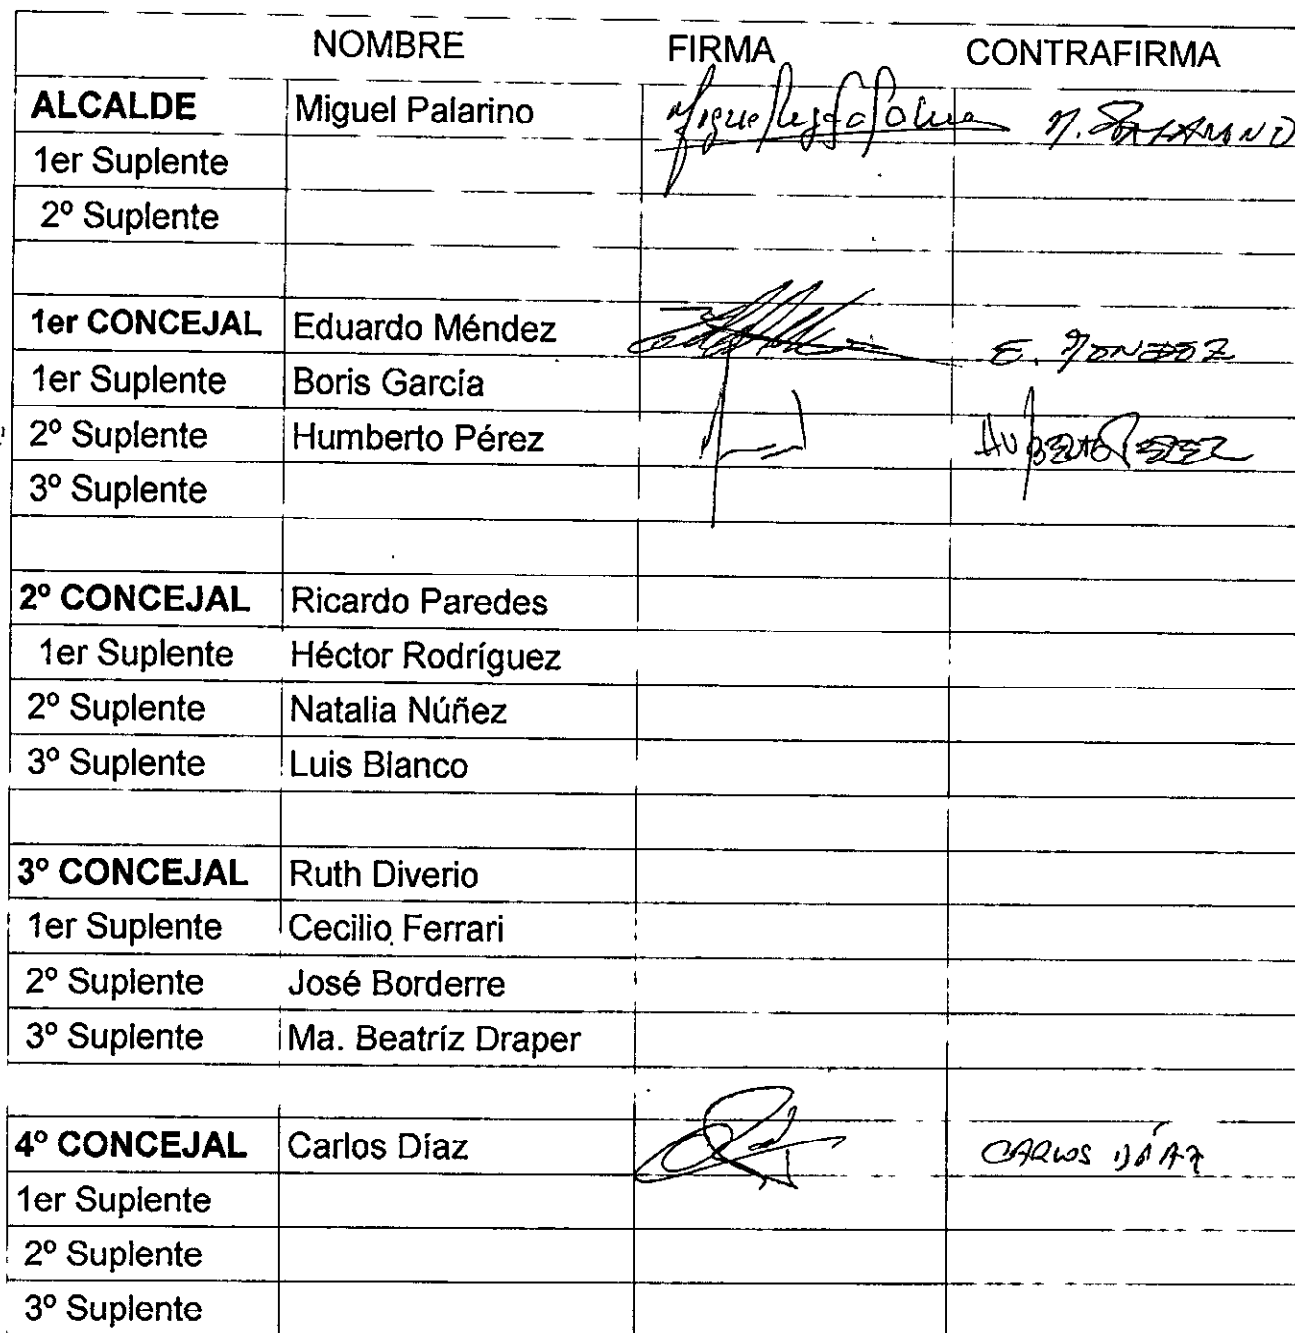 NOMBRE FIRMA CONTRAFIRMA
ALCALDE Miguel Palarino
1er Suplente
2º Suplente
1er CONCEJAL Eduardo Méndez E.
1er Suplente Boris García
2º Suplente Humberto Pérez
3º Suplente
2º CONCEJAL Ricardo Paredes
1er Suplente Héctor Rodríguez
2º Suplente Natalia Núñez
3º Suplente Luis Blanco
3º CONCEJAL Ruth Diverio
1er Suplente Cecilio Ferrari
2º Suplente José Borderre
3º Suplente Ma. Beatríz Draper
4º CONCEJAL Carlos Díaz CARLOS DÍAZ
1er Suplente
2º Suplente
3º Suplente